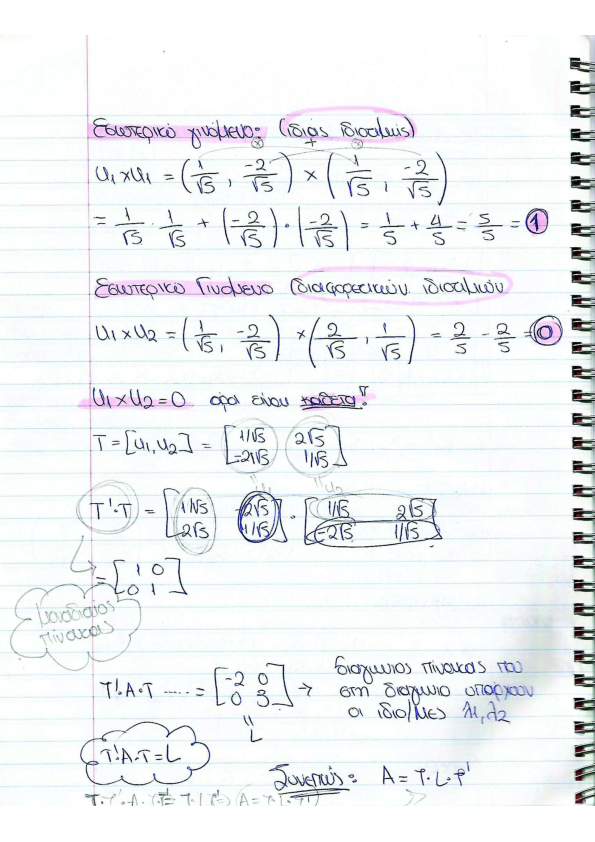 Εσωτερικό γινόμενο: (ίδιας ιδιοτιμής)
(x) + (x)
u₁×u₁ = (1/√5, -2/√5) × (1/√5, -2/√5)
= 1/√5 · 1/√5 + (-2/√5)·(-2/√5) = 1/5 + 4/5 = 5/5 = 1
Εσωτερικό Γινόμενο (διαφορετικών ιδιοτιμών
u₁×u₂ = (1/√5, -2/√5) × (2/√5, 1/√5) = 2/5 - 2/5 = 0
u₁×u₂=0 άρα είναι κάθετα!
T = [u₁,u₂] = [1/√5 2√5
-2√5 1/√5]
"u₁ "u₂
T'·T = [1/√5 -2√5 ] · [1/√5 2√5
2√5 1/√5] [-2√5 1/√5]
= [1 0
0 1]
μοναδιαίος
πίνακας
T'·A·T ..... = [-2 0
0 3] → διαγώνιος πίνακας που
στη διαγώνιο υπάρχουν
οι ιδιο/μες λ₁,λ₂
"
L
T'·A·T=L
Συνεπώς: A = T·L·T'